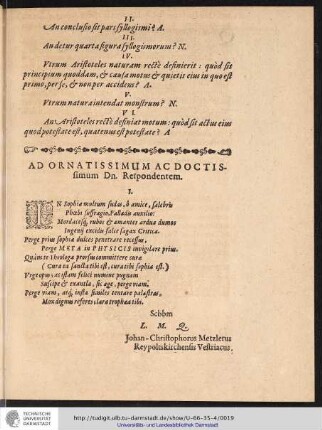 II.
An conclusio sit pars syllogismi? A
III.
An detur quarta figura syllogismorum? N.
IV.
Vtrum Aristoteles naturam rectè definierit: quòd sit
principium quoddam, & causa motus & quietis eius in quo est
primo, per se, & non per accidens? A.
V.
Vtrum natura intendat monstrum? N.
VI.
An Aristoteles rectè definiat motum: quòd sit actus eius
quod potestate est, quatenus est potestate? A
AD ORNATISSIMUM AC DOCTIS-
simum Dn. Respondentem.
I.
IN Sophia multum sudas, ô amice, celebris
Phœbi suffragio, Palladis auxilio:
Mordaces, rubos & amantes ardua dumos
Ingenij excidis falce sagax Critica.
Perge prius sophia dulces penetrare recessus,
Perge META in PHYSICIS invigilare prius.
Quàm te Theologa prorsus committere cura
(Cura tibi sancta est, cura tibi sophia est.)
Vrge opus, ac istam felici numine pugnam
Suscipe & exantla, sic age, perge viam,
Perge viam, atq, ista similes tentare palæstras,
Mox dignus referes clara trophæa tibi.
Scbbm
L. M. Q.
Johan-Christophorus Metzlerus
Reypoltskirchensis Vestriacus.
TECHNISCHE
UNIVERSITÄT
DARMSTADT
http://tudigit.ulb.tu-darmstadt.de/show/U-66-35-4/0019
Universitäts- und Landesbibliothek Darmstadt